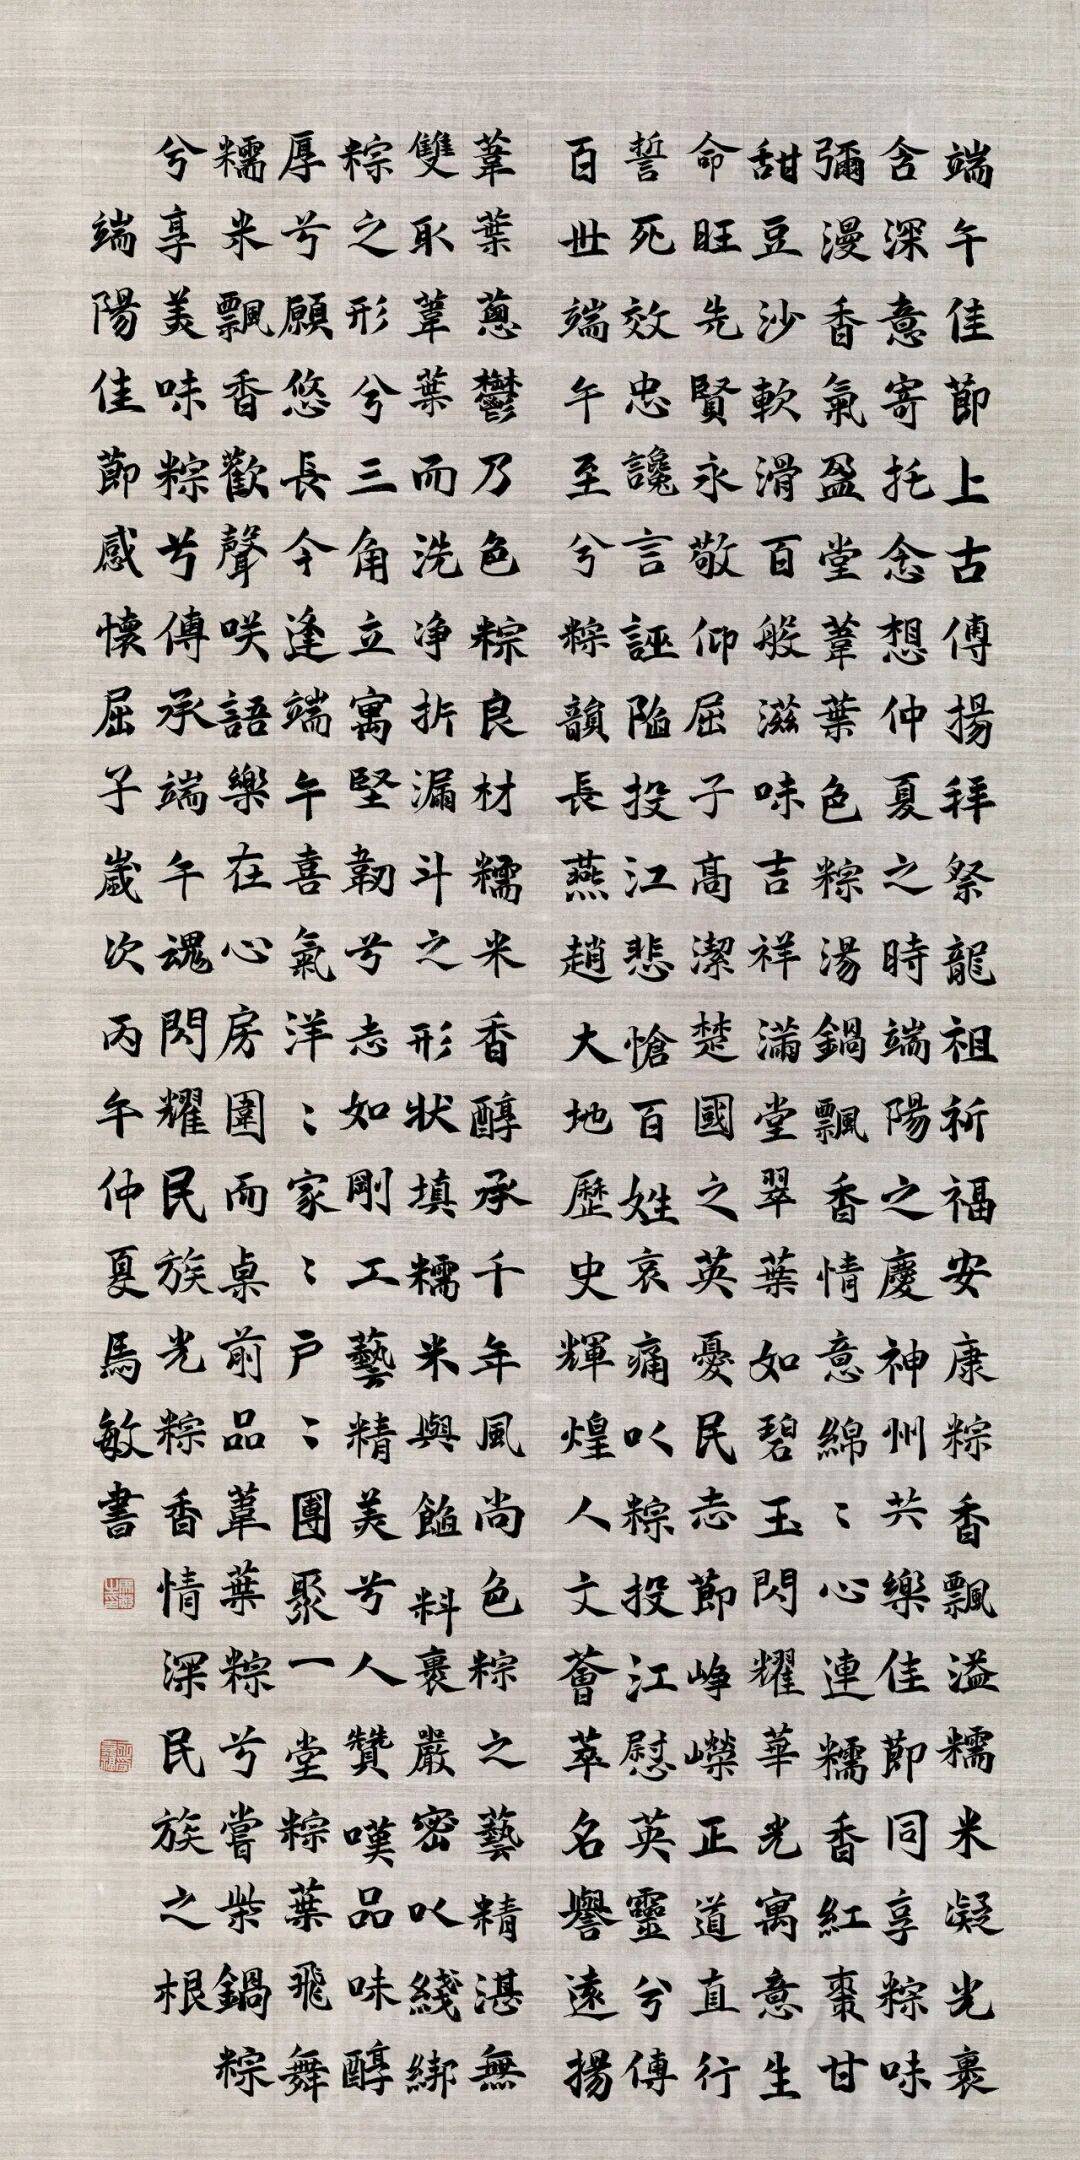 端午佳節上古傳揚拜祭龍祖祈福安康粽香飄溢糯米凝光裹
含深意寄托念想仲夏之時端陽之慶神州共樂佳節同享粽味
彌漫香氣盈堂葦葉色粽湯鍋飄香情意綿〻心連糯香紅棗甘
甜豆沙軟滑百般滋味吉祥滿堂翠葉如碧玉閃耀華光寓意生
命旺先賢永敬仰屈子高潔楚國之英憂民志節崢嶸正道直行
誓死效忠讒言誣陷投江悲愴百姓哀痛以粽投江慰英靈兮傳
百世端午至兮粽韻長燕趙大地歷史輝煌人文薈萃名譽遠揚
葦葉蔥鬱乃色粽良材糯米香醇承千年風尚色粽之藝精湛無
雙取葦葉而洗净折漏斗之形狀填糯米與餡料裹嚴密以綫綁
粽之形兮三角立寓堅韌兮志如剛工藝精美兮人贊嘆品味醇
厚兮願悠長今逢端午喜氣洋〻家〻戶〻團聚一堂粽葉飛舞
糯米飄香歡聲咲語樂在心房圍而桌前品葦葉粽兮嘗柴鍋粽
兮享美味粽兮傳承端午魂閃耀民族光粽香情深民族之根
端陽佳節感懷屈子歲次丙午仲夏馬敏書